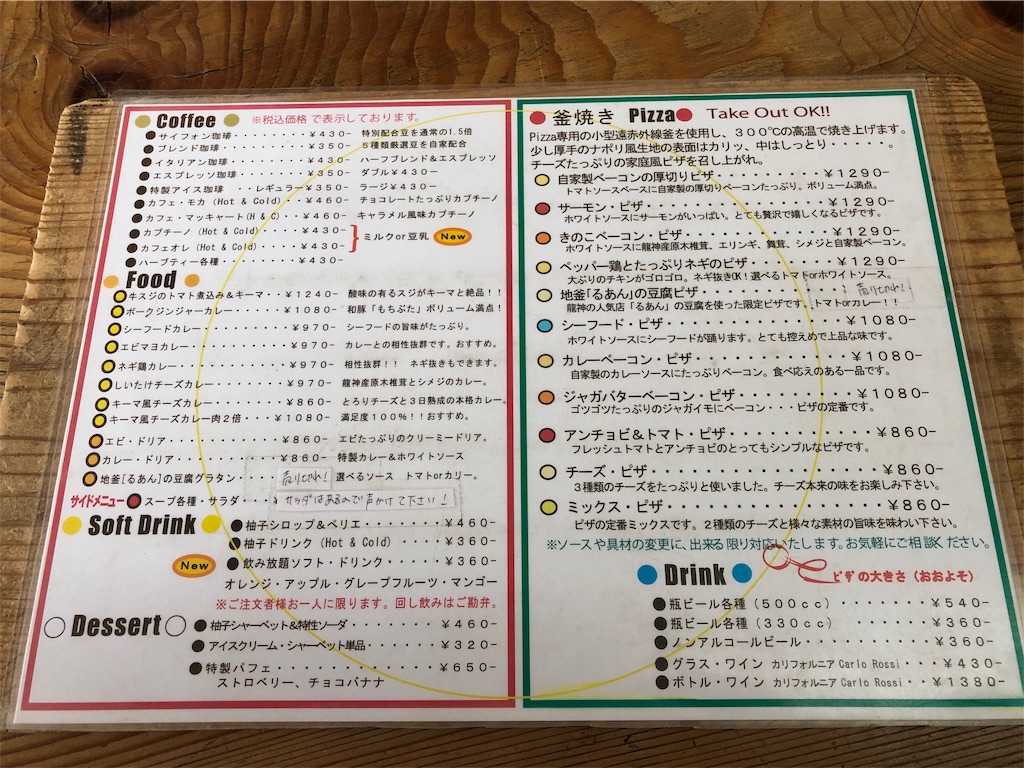 Coffee ※税込価格で表示しております。
サイフォン珈琲・・・・・・・・¥430- 特別配合豆を通常の1.5倍
ブレンド珈琲・・・・・・・・・¥350- 5種類厳選豆を自家配合
イタリアン珈琲・・・・・・・・¥430- ハーフブレンド&エスプレッソ
エスプレッソ珈琲・・・・・・・¥350- ダブル¥430-
特製アイス珈琲 ・・レギュラー¥350- ラージ¥430-
カフェ・モカ(Hot & Cold)・・・¥460- チョコレートたっぷりカプチーノ
カフェ・マッキャート(H & C)・・¥460- キャラメル風味カプチーノ
カプチーノ(Hot & Cold)・・・・¥430-
ミルクor豆乳 New
カフェオレ(Hot & Cold)・・・・¥430-
ハーブティー各種・・・・・・・¥430-
Food
牛スジのトマト煮込み&キーマ・・¥1240- 酸味の有るスジがキーマと絶品!!
ポークジンジャーカレー・・・・¥1080- 和豚「もちぶた」ボリューム満点!
シーフードカレー・・・・・・・・¥970- シーフードの旨味がたっぷり。
エビマヨカレー・・・・・・・・・¥970- カレーとの相性抜群です。おすすめ。
ネギ鶏カレー・・・・・・・・・・¥970- 相性抜群!! ネギ抜きもできます。
しいたけチーズカレー・・・・・・¥970- 龍神産原木椎茸とシメジのカレー。
キーマ風チーズカレー・・・・・・¥860- とろりチーズと3日熟成の本格カレー。
キーマ風チーズカレー肉2倍・・・¥1080- 満足度100%!!おすすめ。
エビ・ドリア・・・・・・・・・・¥860- エビたっぷりのクリーミードリア。
カレー・ドリア・・・・・・・・・¥860- 特製カレー&ホワイトソース
地釜[るあん]の豆腐グラタン 売り切れ! 選べるソース トマトorカリー。
サイドメニュー スープ各種・サラダ・ サラダはあるので声かけて下さい!
Soft Drink
柚子シロップ&ペリエ・・・・・・・¥460-
柚子ドリンク(Hot & Cold)・・・・・¥360-
New 飲み放題ソフト・ドリンク・・・・¥360-
オレンジ・アップル・グレープフルーツ・マンゴー
※ご注文者様お一人に限ります。回し飲みはご勘弁。
Dessert
柚子シャーベット&特性ソーダ・・・・・¥460-
アイスクリーム・シャーベット単品・・・・¥320-
特製パフェ・・・・・・・・・・・・¥650-
ストロベリー、チョコバナナ
釜焼き Pizza Take Out OK!!
Pizza専用の小型遠赤外線釜を使用し、300℃の高温で焼き上げます。
少し厚手のナポリ風生地の表面はカリッ、中はしっとり・・・・・・。
チーズたっぷりの家庭風ピザを召し上がれ。
自家製ベーコンの厚切りピザ・・・・・・・・¥1290-
トマトソースベースに自家製の厚切りベーコンたっぷり。ボリューム満点。
サーモン・ピザ・・・・・・・・・・・・・・¥1290-
ホワイトソースにサーモンがいっぱい。とても贅沢で嬉しくなるピザです。
きのこベーコン・ピザ・・・・・・・・・・・¥1290-
ホワイトソースに龍神産原木椎茸、エリンギ、舞茸、シメジと自家製ベーコン。
ペッパー鶏とたっぷりネギのピザ・・・・・・¥1290-
大ぶりのチキンがゴロゴロ。ネギ抜きOK!選べるトマトorホワイトソース。
地釜「るあん」の豆腐ピザ・・・・・・・・・ 売り切れ!
龍神の人気店「るあん」の豆腐を使った限定ピザです。トマトorカレー!!
シーフード・ピザ・・・・・・・・・・・・・¥1080-
ホワイトソースにシーフードが踊ります。とても控えめで上品な味です。
カレーベーコン・ピザ・・・・・・・・・・・¥1080-
自家製のカレーソースにたっぷりベーコン。食べ応えのある一品です。
ジャガバターベーコン・ピザ・・・・・・・・¥1080-
ゴツゴツたっぷりのジャガイモにベーコン・・・ピザの定番です。
アンチョビ&トマト・ピザ・・・・・・・・・¥860-
フレッシュトマトとアンチョビのとってもシンプルなピザです。
チーズ・ピザ・・・・・・・・・・・・・・・¥860-
3種類のチーズをたっぷりと使いました。チーズ本来の味をお楽しみ下さい。
ミックス・ピザ・・・・・・・・・・・・・・¥860-
ピザの定番ミックスです。2種類のチーズと様々な素材の旨味を味わい下さい。
※ソースや具材の変更に、出来る限り対応いたします。お気軽にご相談ください。
ピザの大きさ(おおよそ)
Drink
瓶ビール各種(500cc)・・・・・・・・¥540-
瓶ビール各種(330cc)・・・・・・・・¥360-
ノンアルコールビール・・・・・・・・・¥360-
グラス・ワイン カリフォルニア Carlo Rossi・・・¥430-
ボトル・ワイン カリフォルニア Carlo Rossi・・¥1380-